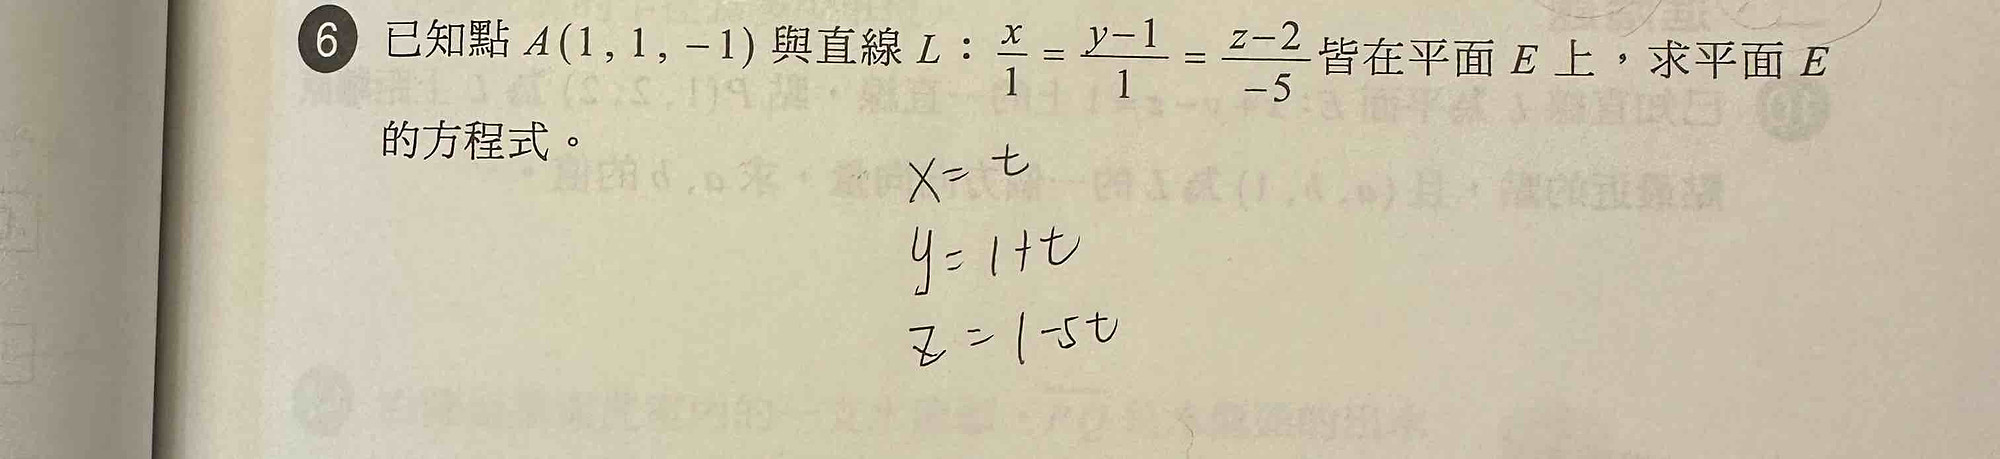 6 已知點 A(1, 1, -1) 與直線 L：x/1 = y-1/1 = z-2/-5 皆在平面 E 上，求平面 E
的方程式。
x= t
y= 1+t
z = 1-5t